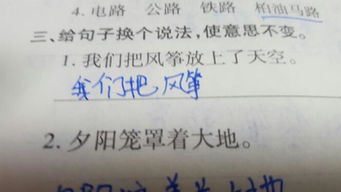 4. 电路 公路 铁路 柏油马路
三、给句子换个说法,使意思不变。
1. 我们把风筝放上了天空。
我们把风筝
2. 夕阳笼罩着大地。